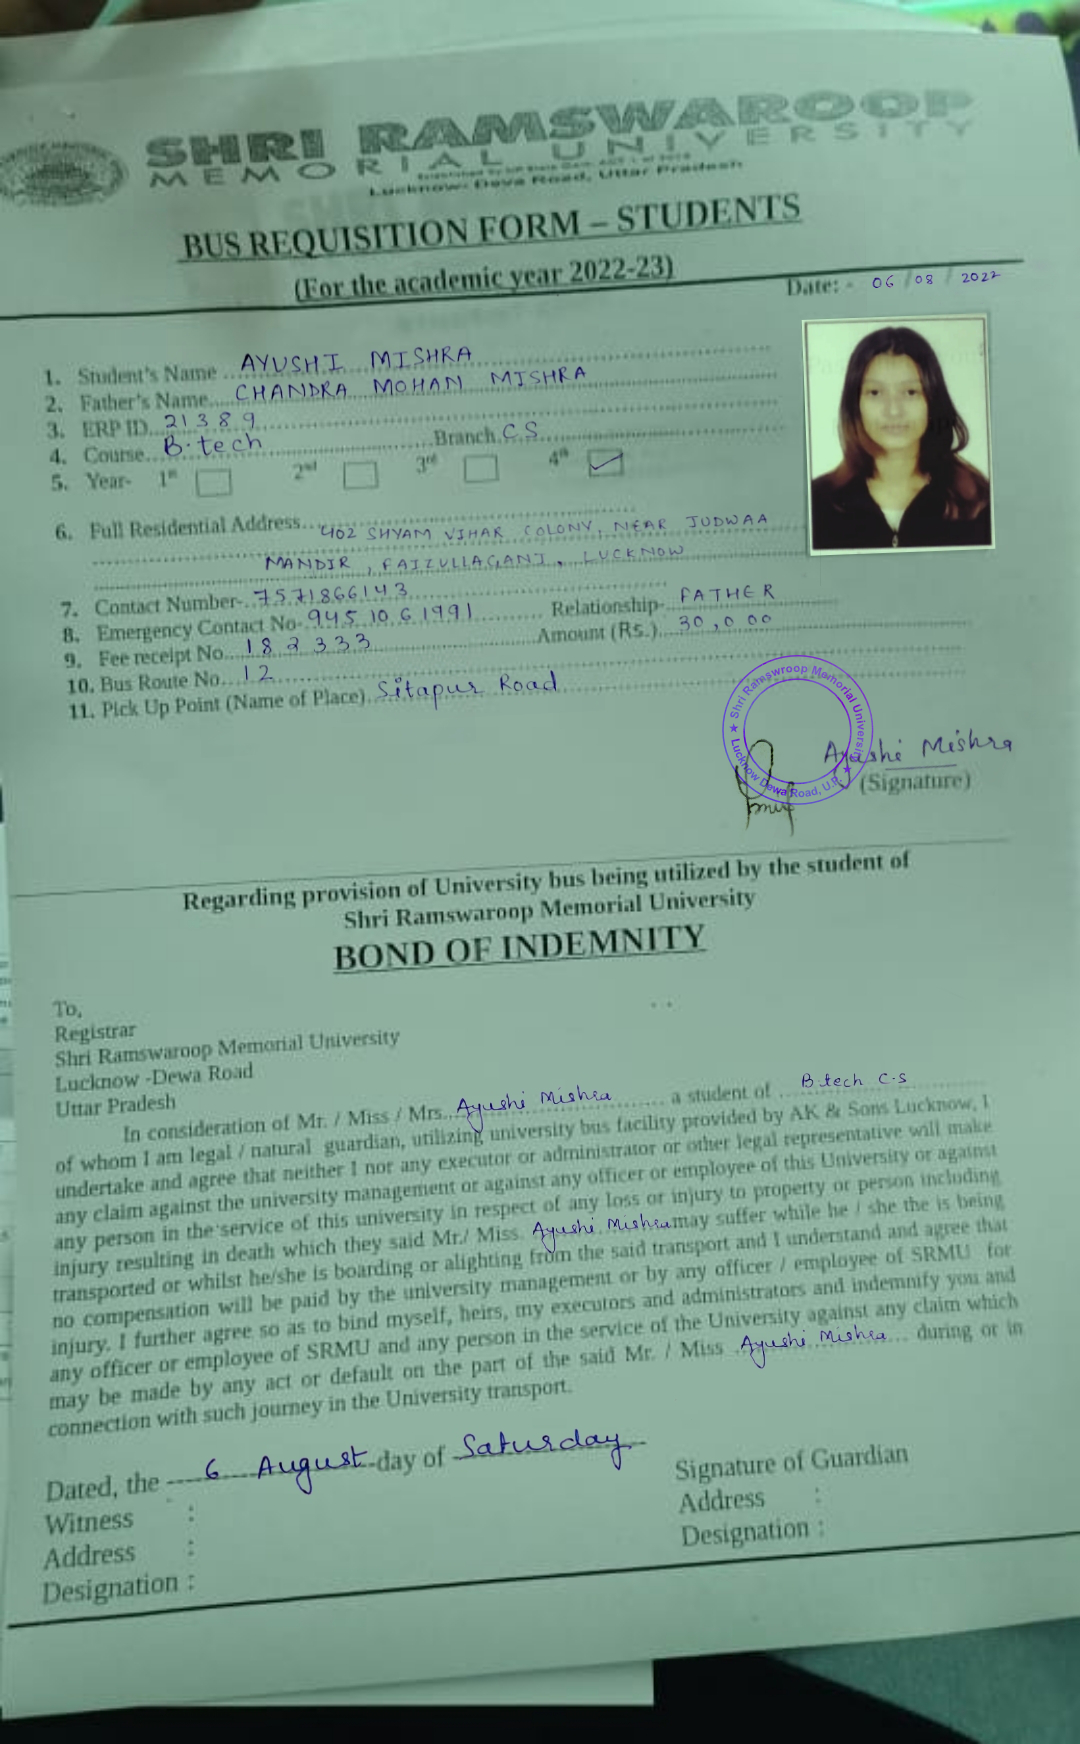 SHRI RAMSWAROOP
MEMORIAL UNIVERSITY
Lucknow-Deva Road, Uttar Pradesh
BUS REQUISITION FORM – STUDENTS
(For the academic year 2022-23)
Date: - 06/08/2022
1. Student's Name AYUSHI MISHRA
2. Father's Name CHANDRA MOHAN MISHRA
3. ERP ID 21389
4. Course B.tech Branch C.S
5. Year- 1st 2nd 3rd 4th ✓
6. Full Residential Address 402 SHYAM VIHAR COLONY, NEAR JUDWAA
MANDIR, FAIZULLAGANJ, LUCKNOW
7. Contact Number- 7571866143
8. Emergency Contact No- 9451061991 Relationship- FATHER
9. Fee receipt No. 182333 Amount (Rs.) 30,000
10. Bus Route No. 12
11. Pick Up Point (Name of Place) Sitapur Road
Shri Ramswroop Memorial University
★ Lucknow Dewa Road, U.P. ★
Ayushi Mishra
(Signature)
Regarding provision of University bus being utilized by the student of
Shri Ramswaroop Memorial University
BOND OF INDEMNITY
To,
Registrar
Shri Ramswaroop Memorial University
Lucknow -Dewa Road
Uttar Pradesh
In consideration of Mr. / Miss / Mrs. Ayushi Mishra a student of B.tech C.S
of whom I am legal / natural guardian, utilizing university bus facility provided by AK & Sons Lucknow, I
undertake and agree that neither I nor any executor or administrator or other legal representative will make
any claim against the university management or against any officer or employee of this University or against
any person in the service of this university in respect of any loss or injury to property or person including
injury resulting in death which they said Mr./ Miss. Ayushi Mishra may suffer while he / she the is being
transported or whilst he/she is boarding or alighting from the said transport and I understand and agree that
no compensation will be paid by the university management or by any officer / employee of SRMU for
injury. I further agree so as to bind myself, heirs, my executors and administrators and indemnify you and
any officer or employee of SRMU and any person in the service of the University against any claim which
may be made by any act or default on the part of the said Mr. / Miss Ayushi Mishra during or in
connection with such journey in the University transport.
Dated, the 6 August day of Saturday
Witness :
Address :
Designation :
Signature of Guardian
Address :
Designation :